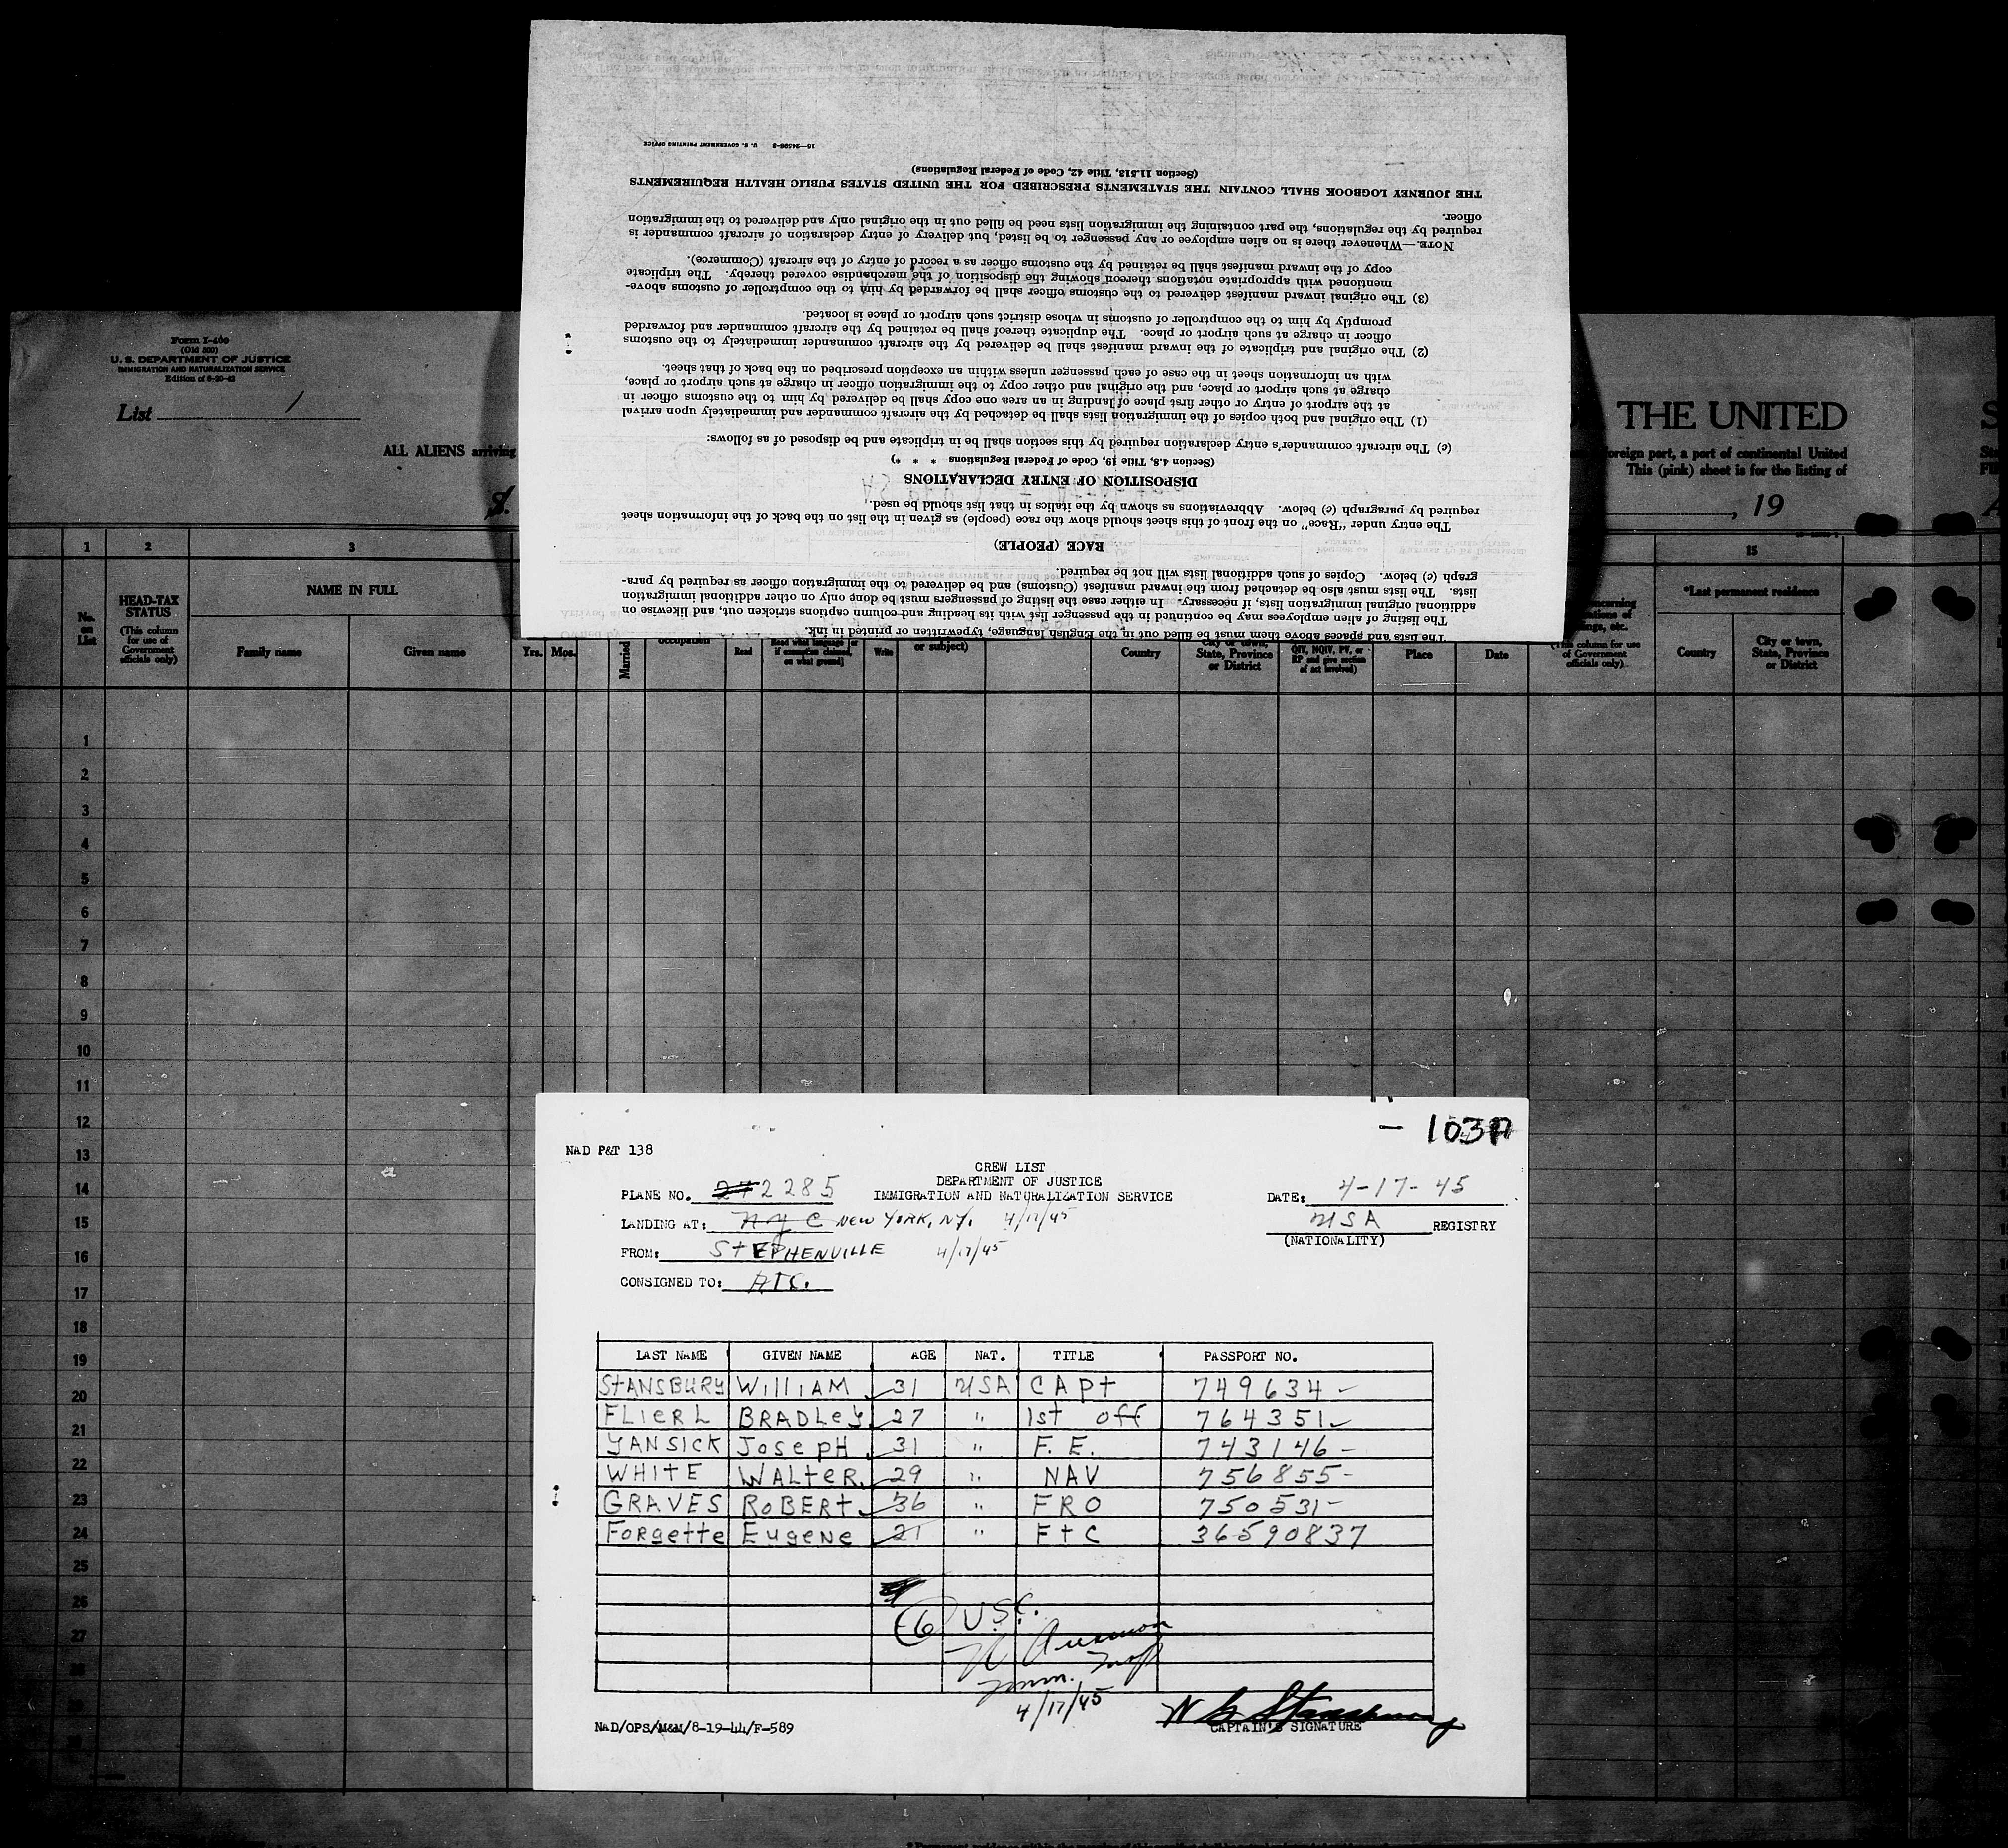 16—24598-2 U. S. GOVERNMENT PRINTING OFFICE
The lists and spaces above them must be filled out in the English language, typewritten or printed in ink.
The listing of alien employees may be continued in the passenger list with its heading and column captions stricken out, and likewise on
additional original immigration lists, if necessary. In either case the listing of passengers must be done only on other additional immigration
lists. The lists must also be detached from the inward manifest (Customs) and be delivered to the immigration officer as required by para-
graph (c) below. Copies of such additional lists will not be required.
RACE (PEOPLE)
The entry under "Race" on the front of this sheet should show the race (people) as given in the list on the back of the information sheet
required by paragraph (c) below. Abbreviations as shown by the italics in that list should be used.
DISPOSITION OF ENTRY DECLARATIONS
(Section 4.8, Title 19, Code of Federal Regulations * * *)
(c) The aircraft commander's entry declaration required by this section shall be in triplicate and be disposed of as follows:
(1) The original and both copies of the immigration lists shall be detached by the aircraft commander and immediately upon arrival
at the airport of entry or other first place of landing in an area one copy shall be delivered by him to the customs officer in
charge at such airport or place, and the original and other copy to the immigration officer in charge at such airport or place,
with an information sheet in the case of each passenger unless within an exception prescribed on the back of that sheet.
(2) The original and triplicate of the inward manifest shall be delivered by the aircraft commander immediately to the customs
officer in charge at such airport or place. The duplicate thereof shall be retained by the aircraft commander and forwarded
promptly by him to the comptroller of customs in whose district such airport or place is located.
(3) The original inward manifest delivered to the customs officer shall be forwarded by him to the comptroller of customs above-
mentioned with appropriate notations thereon showing the disposition of the merchandise covered thereby. The triplicate
copy of the inward manifest shall be retained by the customs officer as a record of entry of the aircraft (Commerce).
NOTE.—Whenever there is no alien employee or any passenger to be listed, but delivery of entry declaration of aircraft commander is
required by the regulations, the part containing the immigration lists need be filled out in the original only and delivered to the immigration
officer.
THE JOURNEY LOGBOOK SHALL CONTAIN THE STATEMENTS PRESCRIBED FOR THE UNITED STATES PUBLIC HEALTH REQUIREMENTS
(Section 11.513, Title 42, Code of Federal Regulations)
Form I-400
(Old 500)
U. S. DEPARTMENT OF JUSTICE
IMMIGRATION AND NATURALIZATION SERVICE
Edition of 6-20-42
List 1
THE UNITED
ALL ALIENS arriving
foreign port, a port of continental United
This (pink) sheet is for the listing of
S.
, 19
1 2 3 15
No. on List
HEAD-TAX STATUS
(This column for use of Government officials only)
NAME IN FULL
Family name Given name
Yrs. Mos.
Married
occupation
Read
Read what language [or if exemption claimed, on what ground]
Write
or subject)
Country
City or town, State, Province or District
QIV, NQIV, PV, or RP and give section of act involved)
Place Date
(This column for use of Government officials only)
*Last permanent residence
Country
City or town, State, Province or District
1
2
3
4
5
6
7
8
9
10
11
12
13
14
15
16
17
18
19
20
21
22
23
24
25
26
27
28
29
– 103A
NAD P&T 138
CREW LIST
DEPARTMENT OF JUSTICE
IMMIGRATION AND NATURALIZATION SERVICE
PLANE NO. 242285
DATE: 4-17-45
LANDING AT: NYC NEW YORK, NY. 4/17/45
USA REGISTRY
(NATIONALITY)
FROM: StEPHENVILLE 4/17/45
CONSIGNED TO: ATC.
LAST NAME GIVEN NAME AGE NAT. TITLE PASSPORT NO.
StANSBURY WilliAM 31 USA CAPt 749634 –
FLIERL BRADLey 27 " 1st off 764351
YANSICK JosepH 31 " F. E. 743146 –
WHItE WALtER 29 " NAV 756855-
GRAVES RoBERt 36 " FRO 750531-
Forgette EugeNe 21 " FtC 36590837
(6) U.S.C.
Imm. Insp
4/17/45
W G Stansbury
CAPTAIN'S SIGNATURE
NAD/OPS/M&M/8-19-44/F-589